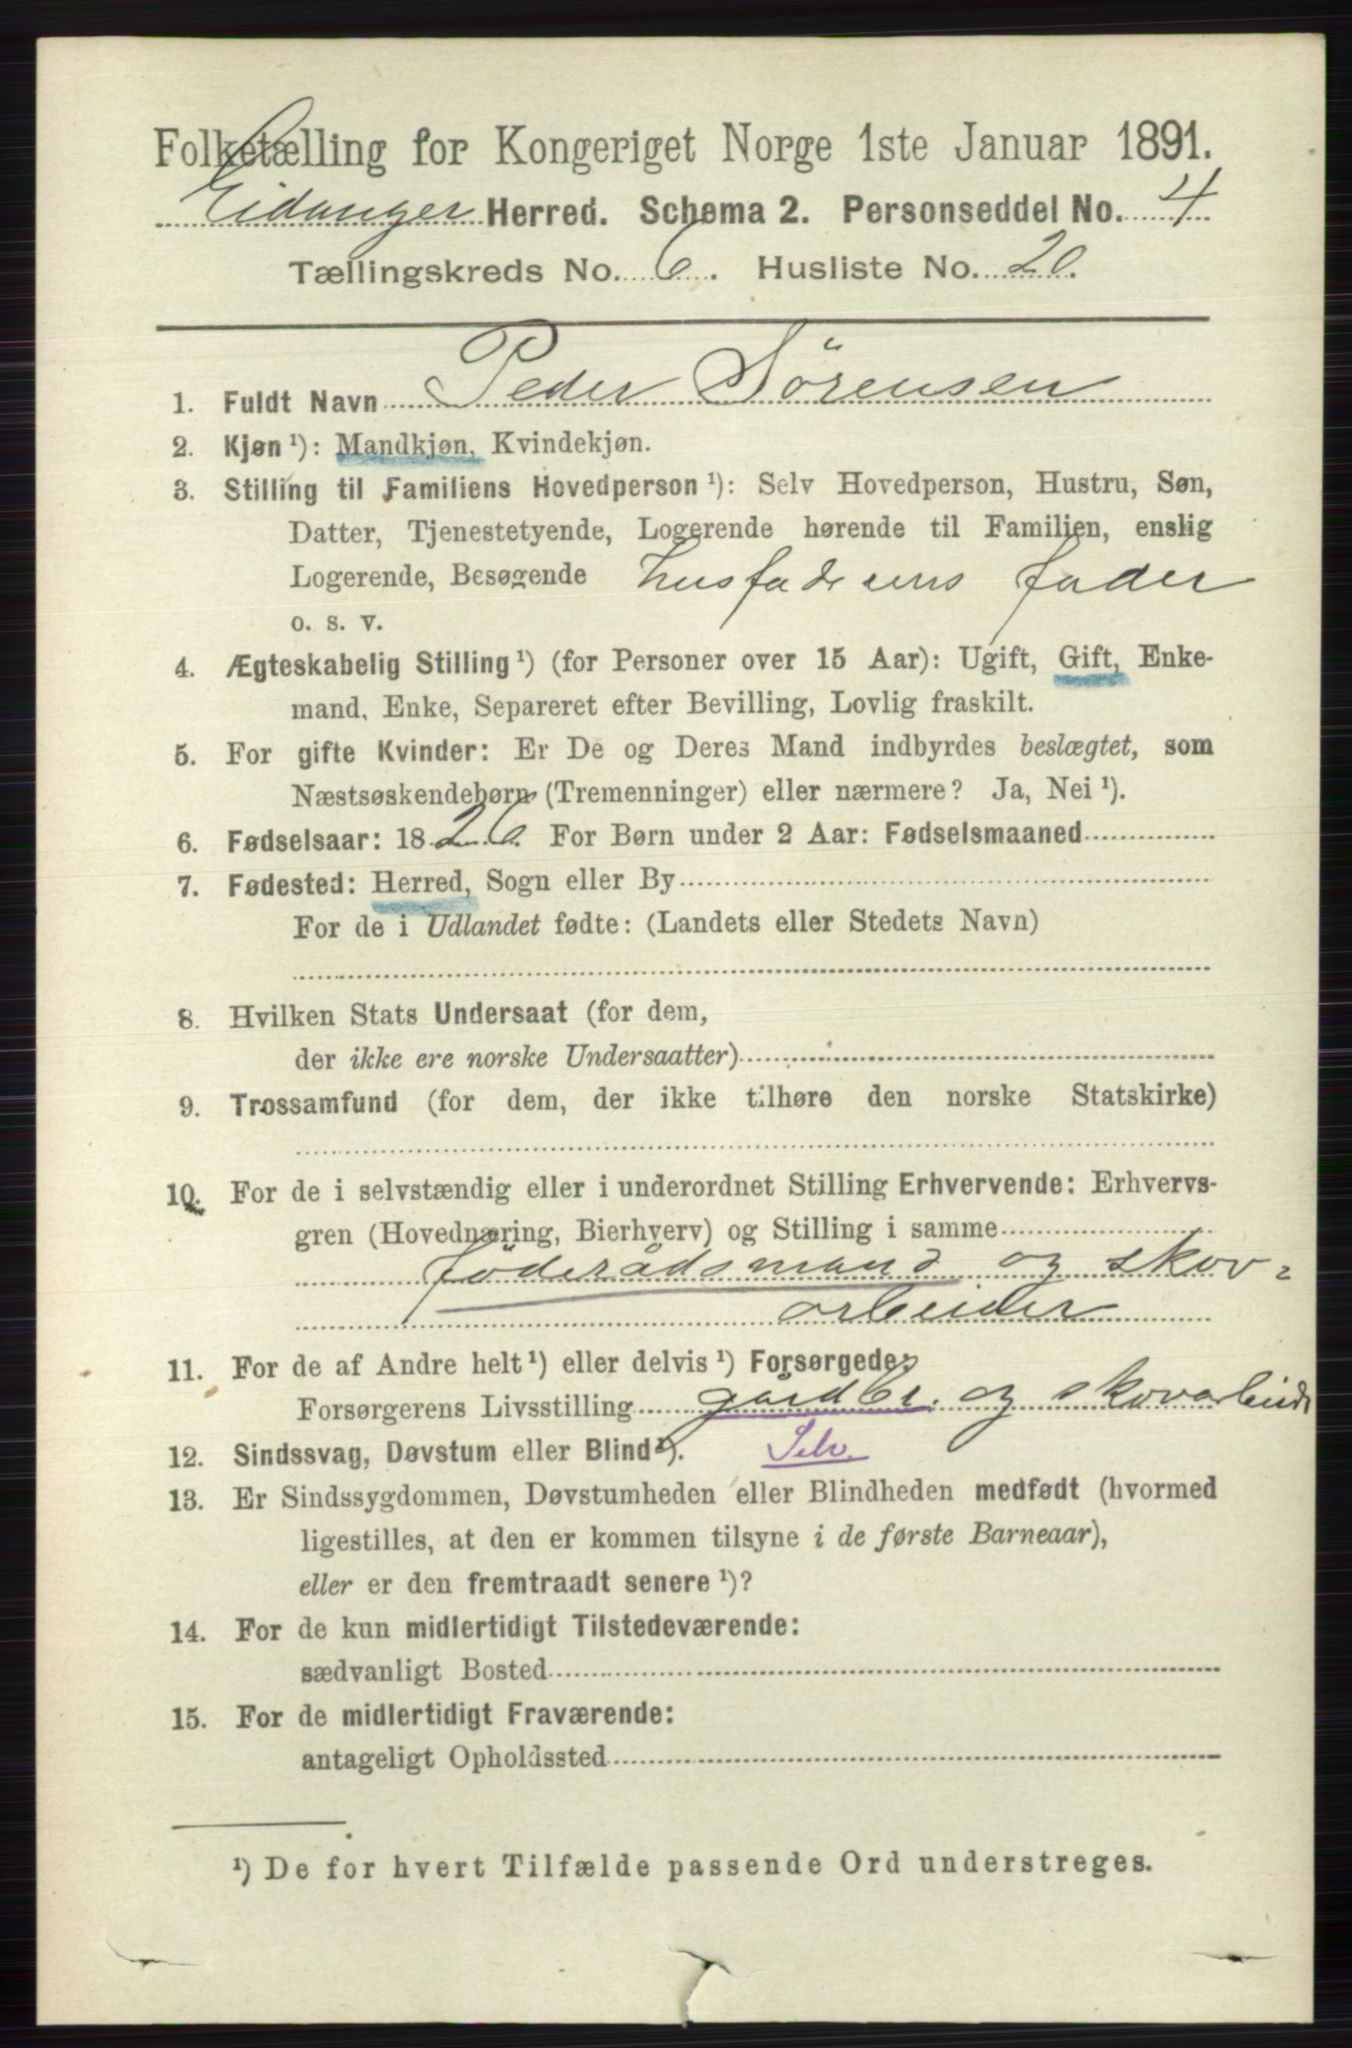 Folketælling for Kongeriget Norge 1ste Januar 1891.
Eidanger Herred. Schema 2. Personseddel No. 4
Tællingskreds No. 6. Husliste No. 20.
1. Fuldt Navn Peder Sörensen
2. Kjøn ¹): Mandkjøn, Kvindekjøn.
3. Stilling til Familiens Hovedperson ¹): Selv Hovedperson, Hustru, Søn,
Datter, Tjenestetyende, Logerende hørende til Familien, enslig
Logerende, Besøgende husfaderens fader
o. s. v.
4. Ægteskabelig Stilling ¹) (for Personer over 15 Aar): Ugift, Gift, Enke-
mand, Enke, Separeret efter Bevilling, Lovlig fraskilt.
5. For gifte Kvinder: Er De og Deres Mand indbyrdes beslægtet, som
Næstsøskendebørn (Tremenninger) eller nærmere? Ja, Nei ¹).
6. Fødselsaar: 1826. For Børn under 2 Aar: Fødselsmaaned
7. Fødested: Herred, Sogn eller By
For de i Udlandet fødte: (Landets eller Stedets Navn)
8. Hvilken Stats Undersaat (for dem,
der ikke ere norske Undersaatter)
9. Trossamfund (for dem, der ikke tilhøre den norske Statskirke)
10. For de i selvstændig eller i underordnet Stilling Erhvervende: Erhvervs-
gren (Hovednæring, Bierhverv) og Stilling i samme
föderådsmand og skov-
arbeider
11. For de af Andre helt ¹) eller delvis ¹) Forsørgede:
Forsørgerens Livsstilling gårdbr. og skovarbeider
12. Sindssvag, Døvstum eller Blind ¹). Selv.
13. Er Sindssygdommen, Døvstumheden eller Blindheden medfødt (hvormed
ligestilles, at den er kommen tilsyne i de første Barneaar),
eller er den fremtraadt senere ¹)?
14. For de kun midlertidigt Tilstedeværende:
sædvanligt Bosted
15. For de midlertidigt Fraværende:
antageligt Opholdssted
¹) De for hvert Tilfælde passende Ord understreges.